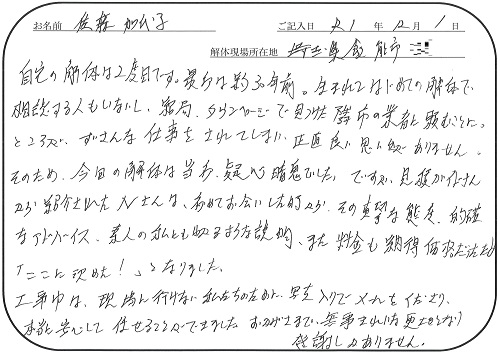 お名前 佐藤 加代子 ご記入日 R1年 12月 1日
解体現場所在地 埼玉県飯能市
自宅の解体は2度目です。最初は約30年前。生まれてはじめての解体で
相談する人もいないし、結局、タウンページで見つけた隣市の業者に頼むことに。
ところが、ずさんな仕事をされてしまい、正直良い思い出がありません。
そのため、今回の解体は当初、疑心暗鬼でした。ですが、見積ガイドさん
から紹介されたNさんは、初めてお会いした時から、その真摯な態度、的確
なアドバイス、素人の私ども にも分かるような説明、また料金も納得価格だったため
「ここに決めた!」となりました。
工事中は、現場に行けない私たちのために、写真入りでメールをくださり、
本当に安心して任せることができました。おかげさまで、無事きれいな更地となり
感謝しかありません。